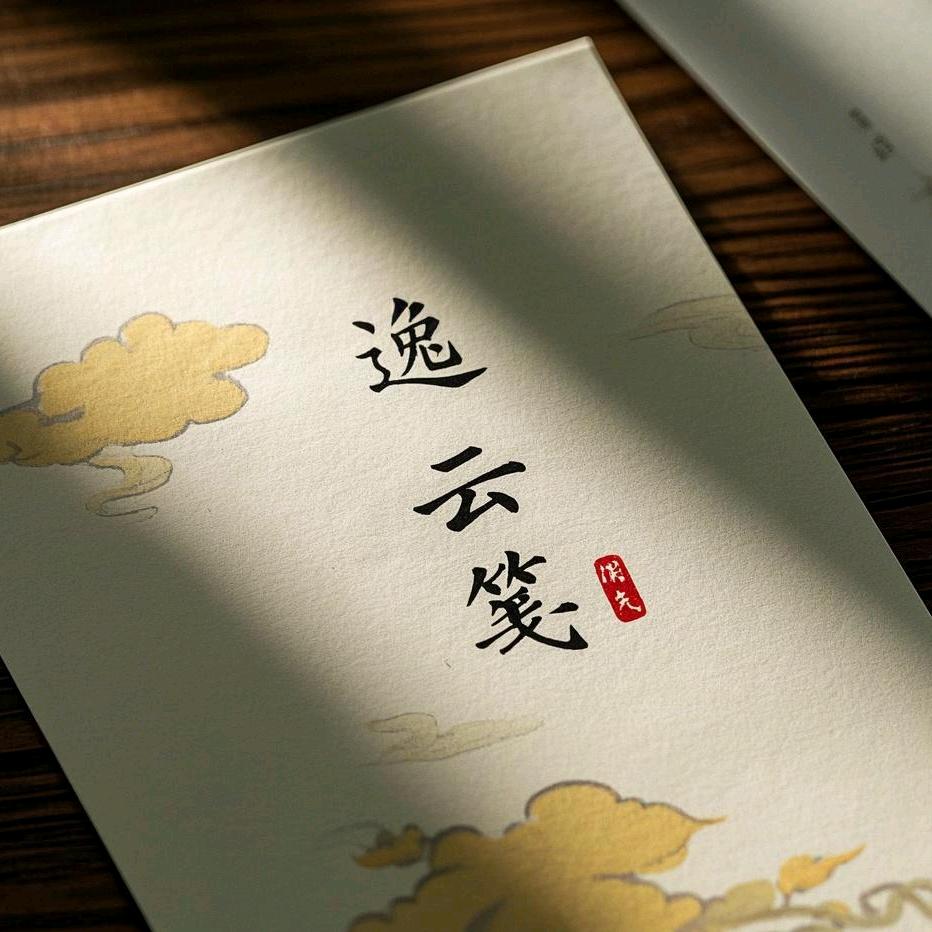 逸云笺